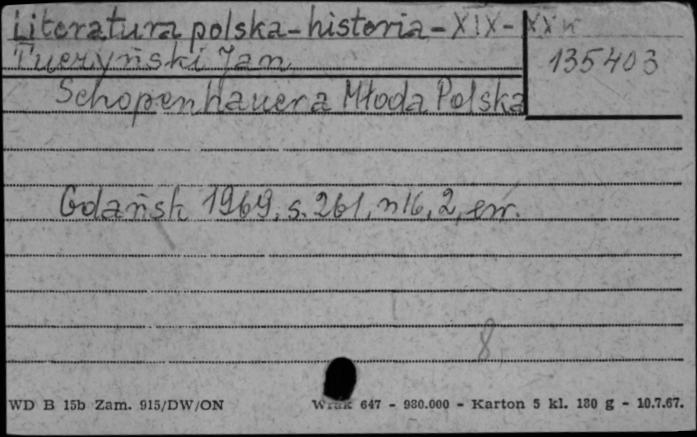 Literatura polska - historia - XIX - XX w
Tuczyński Jan
135403
Schopenhauer a Młoda Polska
Gdańsk 1969, s. 261, nlb, 2, err.
8
WD B 15b Zam. 915/DW/ON
Wrak 647 - 980.000 - Karton 5 kl. 180 g - 10.7.67.